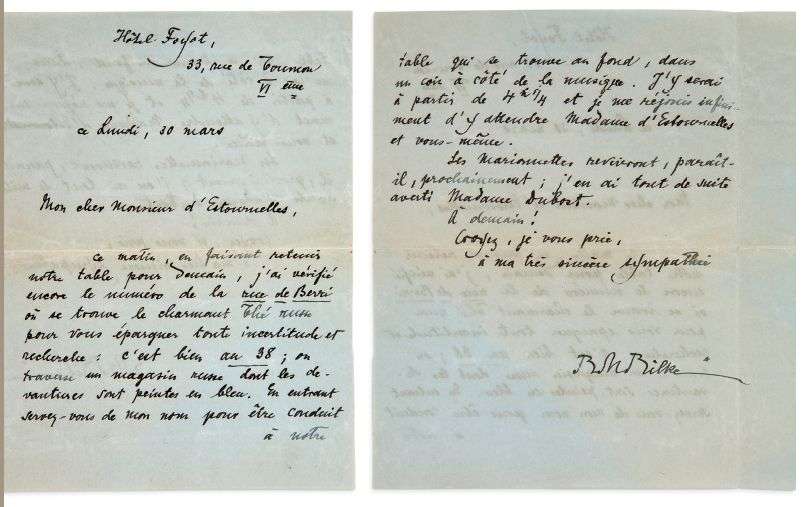 Hôtel Foyot,
33, rue de Tournon
VI ème
ce Lundi, 30 mars
Mon cher Monsieur d'Estournelles,
ce matin, en faisant retenir
notre table pour demain, j'ai vérifié
encore le numéro de la rue de Berri
où se trouve le charmant Thé russe
pour vous épargner toute incertitude et
recherche : c'est bien au 38 ; on
traverse un magasin russe dont les de-
vantures sont peintes en bleu. En entrant
servez-vous de mon nom pour être conduit
à notre
table qui se trouve au fond, dans
un coin à côté de la musique. J'y serai
à partir de 4 h 1/4 et je me réjouis infini-
ment d'y attendre Madame d'Estournelles
et vous-même.
Les Marionnettes revivront, paraît-
il, prochainement ; j'en ai tout de suite
averti Madame Dubost.
À demain !
Croyez, je vous prie,
à ma très sincère sympathie
RMRilke